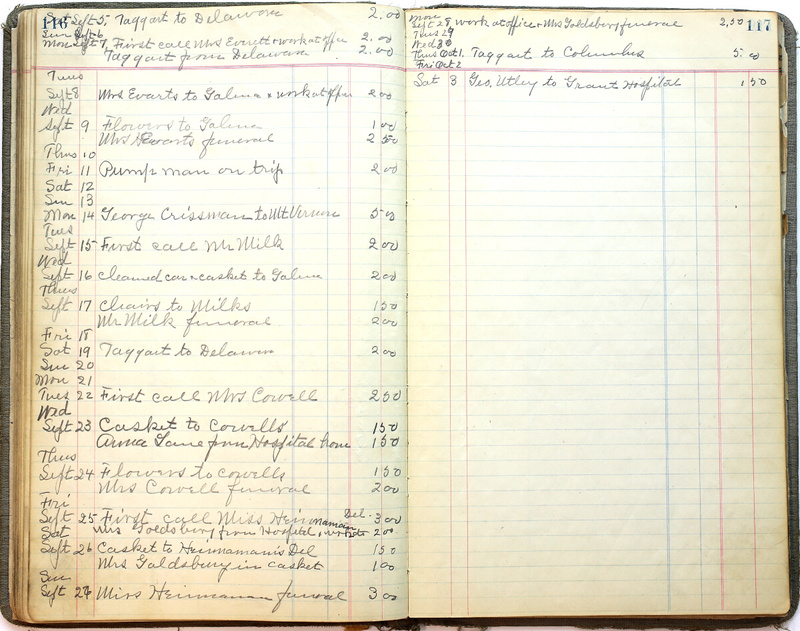 116
Sat Sept 5. Taggart to Delaware 2.00
Sun Sept 6
Mon Sept 7. First call Mrs Everett & work at office 2.00
Taggart from Delaware 2.00
Thurs
Sept 8 Mrs Evarts to Galena & work at office 200
Wed
Sept 9 Flowers to Galena 100
Mrs Evarts funeral 250
Thus 10
Fri 11 Pump man on trip 200
Sat 12
Sun 13
Mon 14 George Crissman to Mt Vernon 500
Tues
Sept 15 First call Mr Milk 200
Wed
Sept 16 cleaned car & casket to Galena 200
Thus
Sept 17 Chairs to Milks 150
Mr Milk funeral 200
Fri 18
Sat 19 Taggart to Delaware 200
Sun 20
Mon 21
Tues 22 First call Mrs Cowell 250
Wed
Sept 23 Casket to Cowells 150
Anna Lane from Hospital home 150
Thus
Sept 24 Flowers to Cowells 150
Mrs Cowell funeral 200
Fri
Sept 25 First call Miss Heinnamain Del. 300
Sat Mrs Goldsbery from Hospital & work 200
Sept 26 Casket to Heinnamanis Del 150
Mrs Goldsbery in casket 100
Sun
Sept 27 Miss Heinnaman funeral 300
117
Mon
Sept 28 work at office & Mrs Goldsbery funeral 2,50
Tues 29
Wed 30
Thus Oct 1. Taggart to Columbus 5.00
Fri Oct 2
Sat 3 Geo. Utley to Grant Hospital 150